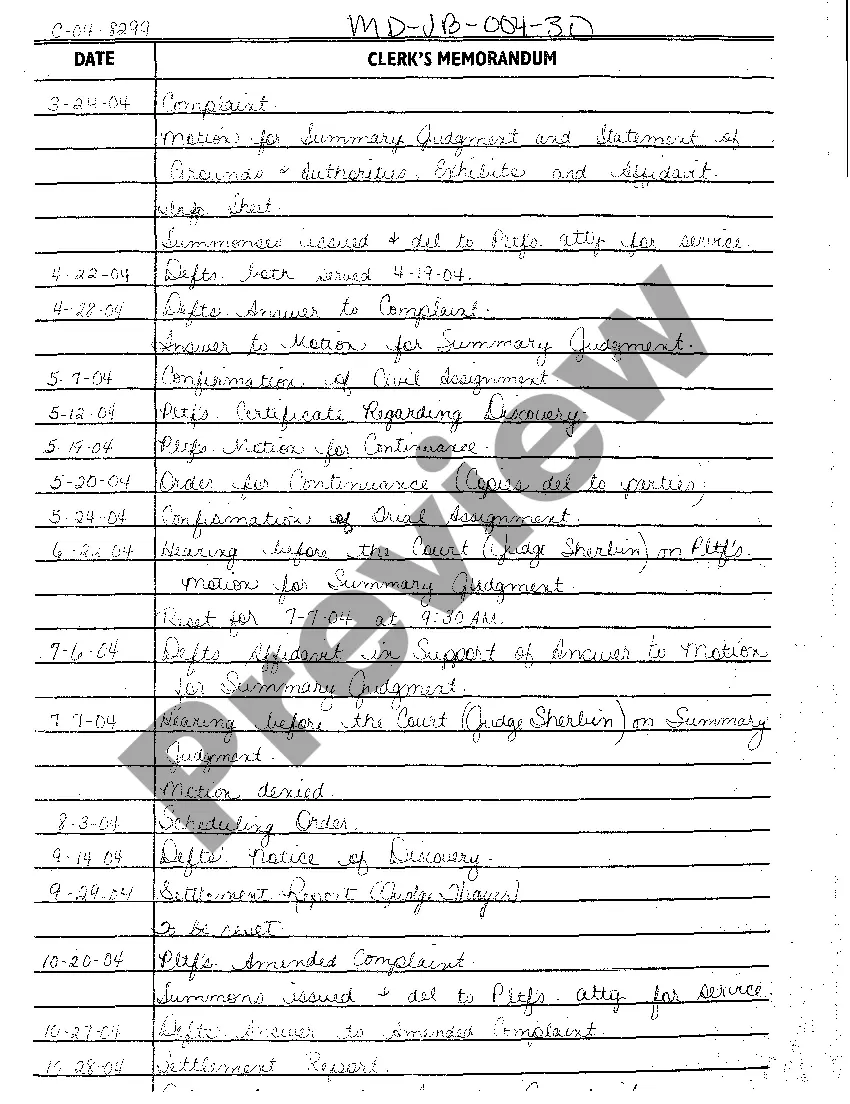 C-04-8299 MD-JB-004-3D
DATE CLERK'S MEMORANDUM
3-24-04 Complaint.
Motion for Summary Judgment and Statement of
Grounds & Authorities, Exhibits and Affidavit.
Info Sheet.
Summonses issued & del to Pltfs. atty for service.
4-22-04 Defts. both served 4-19-04.
4-28-04 Defts. Answer to Complaint.
Answer to Motion for Summary Judgment.
5-7-04 Confirmation of Civil Assignment.
5-12-04 Pltf's. Certificate Regarding Discovery.
5-19-04 Pltfs. Motion for Continuance.
5-20-04 Order for Continuance (Copies del to parties)
5-24-04 Confirmation of Trial Assignment.
6-22-04 Hearing before the Court (Judge Sherbin) on Pltf's.
Motion for Summary Judgment.
Reset for 7-7-04 at 9:30 AM.
7-6-04 Defts. Affidavit in Support of Answer to Motion
for Summary Judgment.
7-7-04 Hearing before the Court (Judge Sherbin) on Summary
Judgment.
Motion denied.
8-3-04 Scheduling Order.
9-14-04 Defts. Notice of Discovery.
9-29-04 Settlement Report (Judge Thayer)
To be reset.
10-20-04 Pltf's. Amended Complaint.
Summons issued & del to Pltfs. atty for service.
10-27-04 Defts. Answer to Amended Complaint.
10-28-04 Settlement Report.
Preview